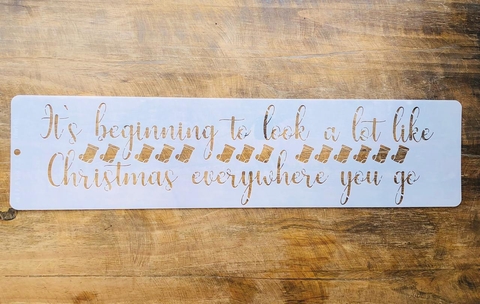 It's beginning to look a lot like
Christmas everywhere you go